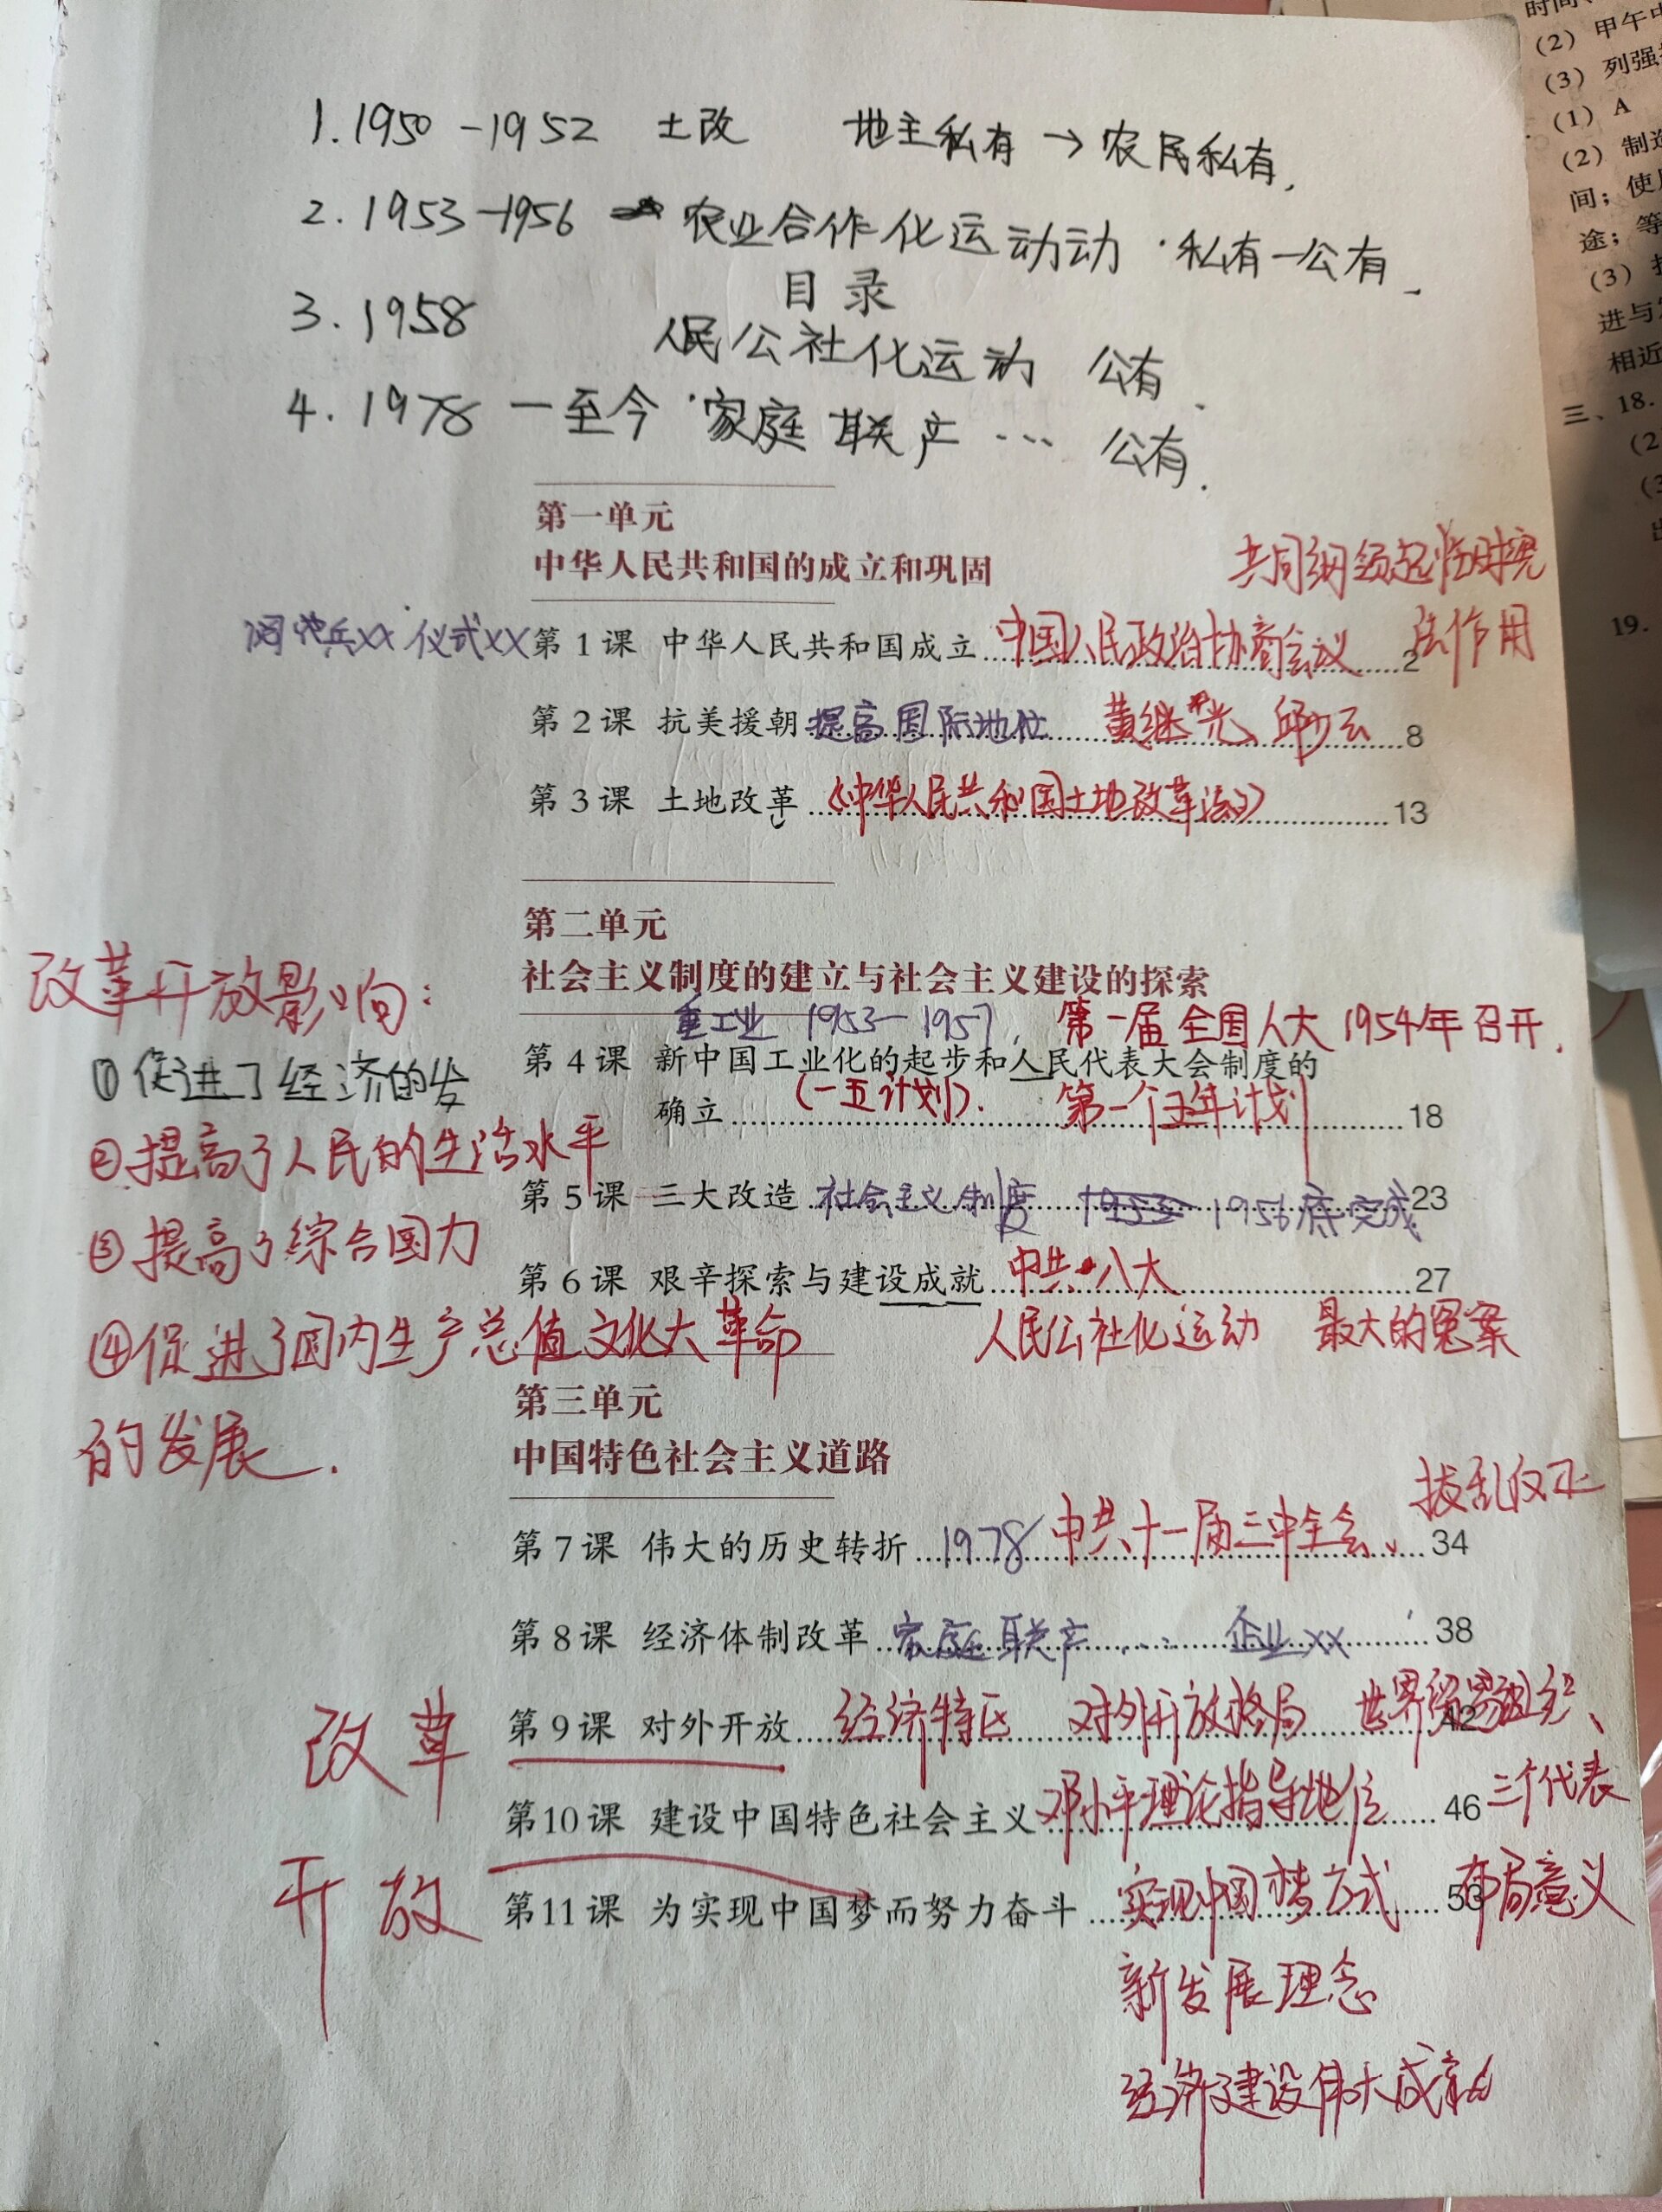 1. 1950-1952 土改 地主私有→农民私有,
2. 1953-1956 农业合作化运动动·私有一公有
目录
3. 1958 人民公社化运动 公有
4. 1978 一至今·家庭联产… 公有.
第一单元
中华人民共和国的成立和巩固
共同纲领起临时宪
法作用
阅 兵XX 仪式XX 第1课 中华人民共和国成立 中国人民政治协商会议 2
第2课 抗美援朝 提高国际地位 黄继光、邱少云 8
第3课 土地改革 《中华人民共和国土地改革法》 13
第二单元
社会主义制度的建立与社会主义建设的探索
重工业 1953-1957, 第一届全国人大1954年召开.
第4课 新中国工业化的起步和人民代表大会制度的
确立 (一五计划). 第一个五年计划 18
第5课 三大改造 社会主义制度 1953 1956底完成 23
第6课 艰辛探索与建设成就 中共八大 27
文化大革命 人民公社化运动 最大的冤案
改革开放影响:
①促进了经济的发
②提高了人民的生活水平
③提高了综合国力
④促进了国内生产总值
的发展.
第三单元
中国特色社会主义道路
拨乱反正
第7课 伟大的历史转折 1978 中共十一届三中全会、 34
第8课 经济体制改革 家庭联产… 企业XX 38
改革
开放
第9课 对外开放 经济特区 对外开放格局 世界贸易组织、 42
第10课 建设中国特色社会主义 邓小平理论指导地位 46 三个代表
第11课 为实现中国梦而努力奋斗 实现中国梦方式 53 布局意义
新发展理念
经济建设伟大成就
时间、
(2) 甲午中
(3) 列强
(1) A
(2) 制造
间；使
途；等
(3)
进与
相近
三、18.
(2
(3
19.